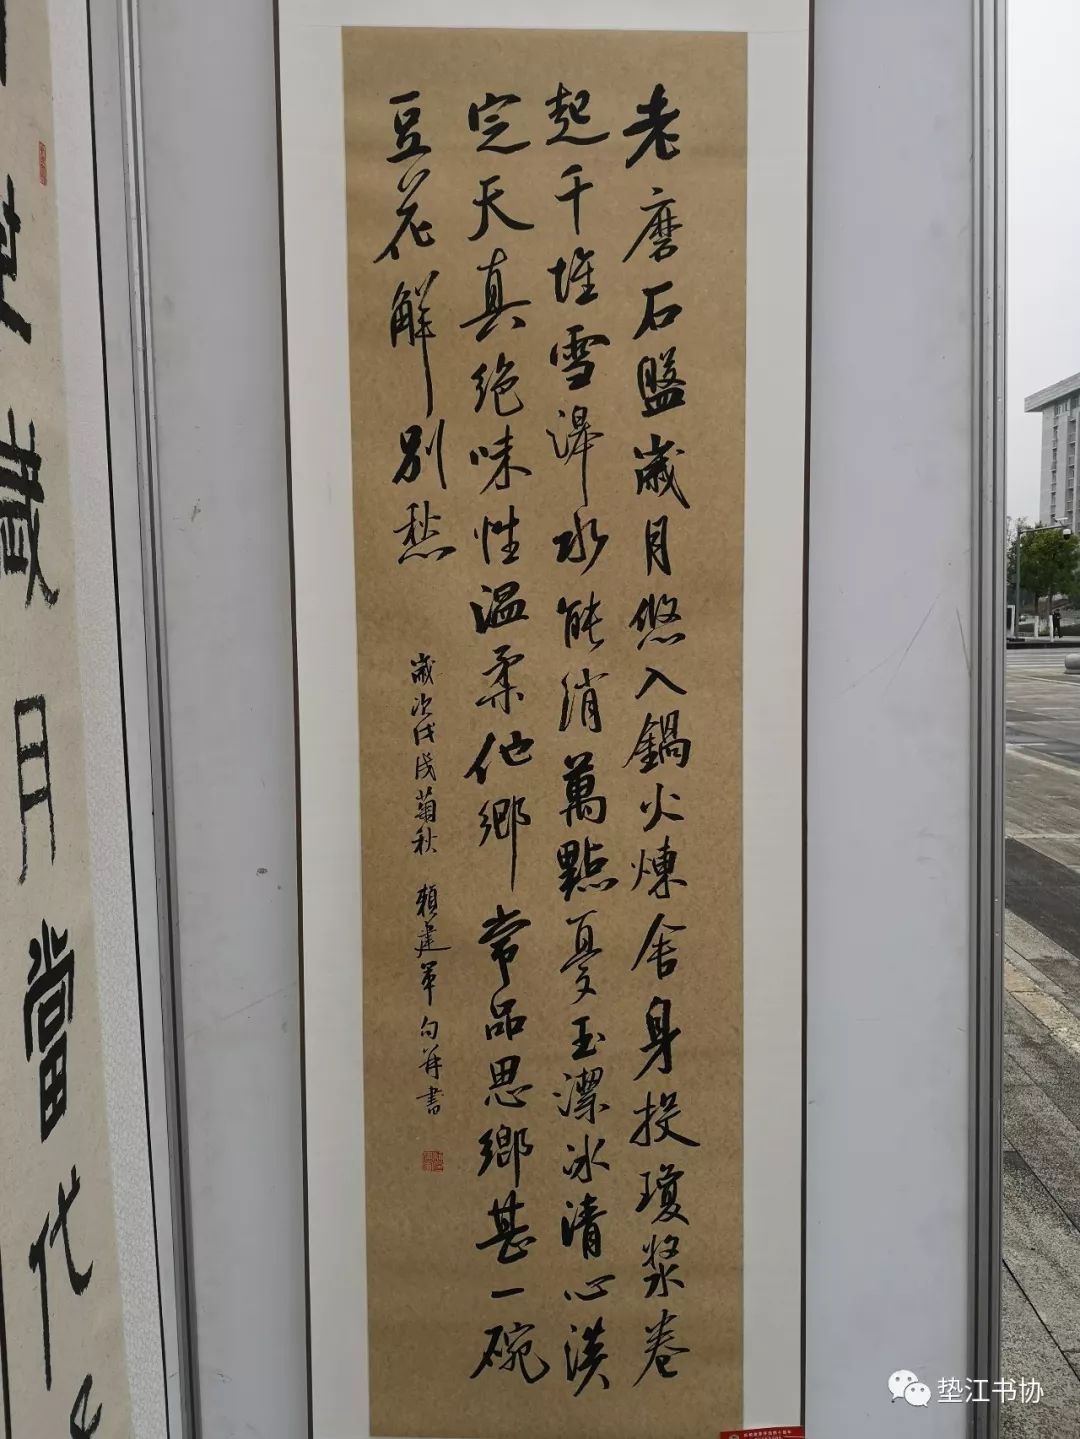 老磨石盤歲月悠入鍋火煉舍身投瓊漿卷
起千堆雪水能綃萬點憂玉潔冰清心淡
定天真絶味性温柔他鄉常品思鄉甚一碗
豆花解别愁
歲次戊戌菊秋 賴建軍句并書
歲月當代
垫江书协